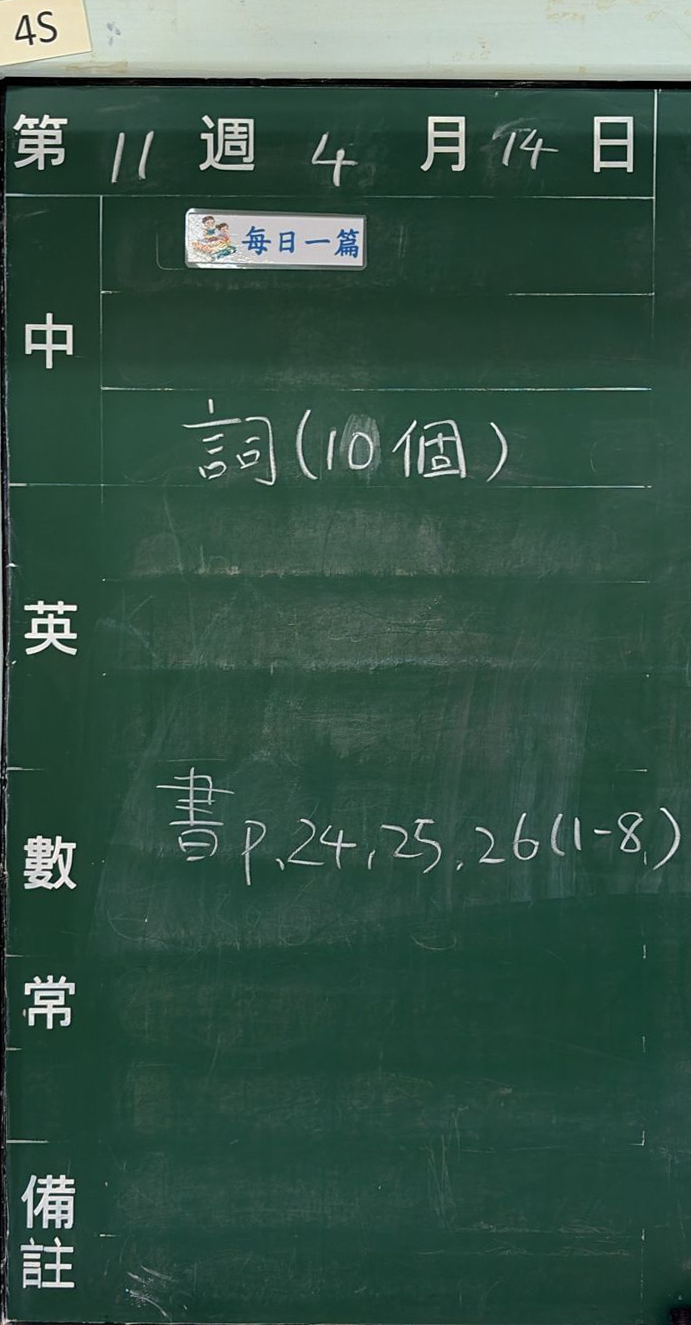 4S
第 11 週 4 月 14 日
每日一篇
中
詞(10個)
英
數 書P.24,25,26(1-8)
常
備註